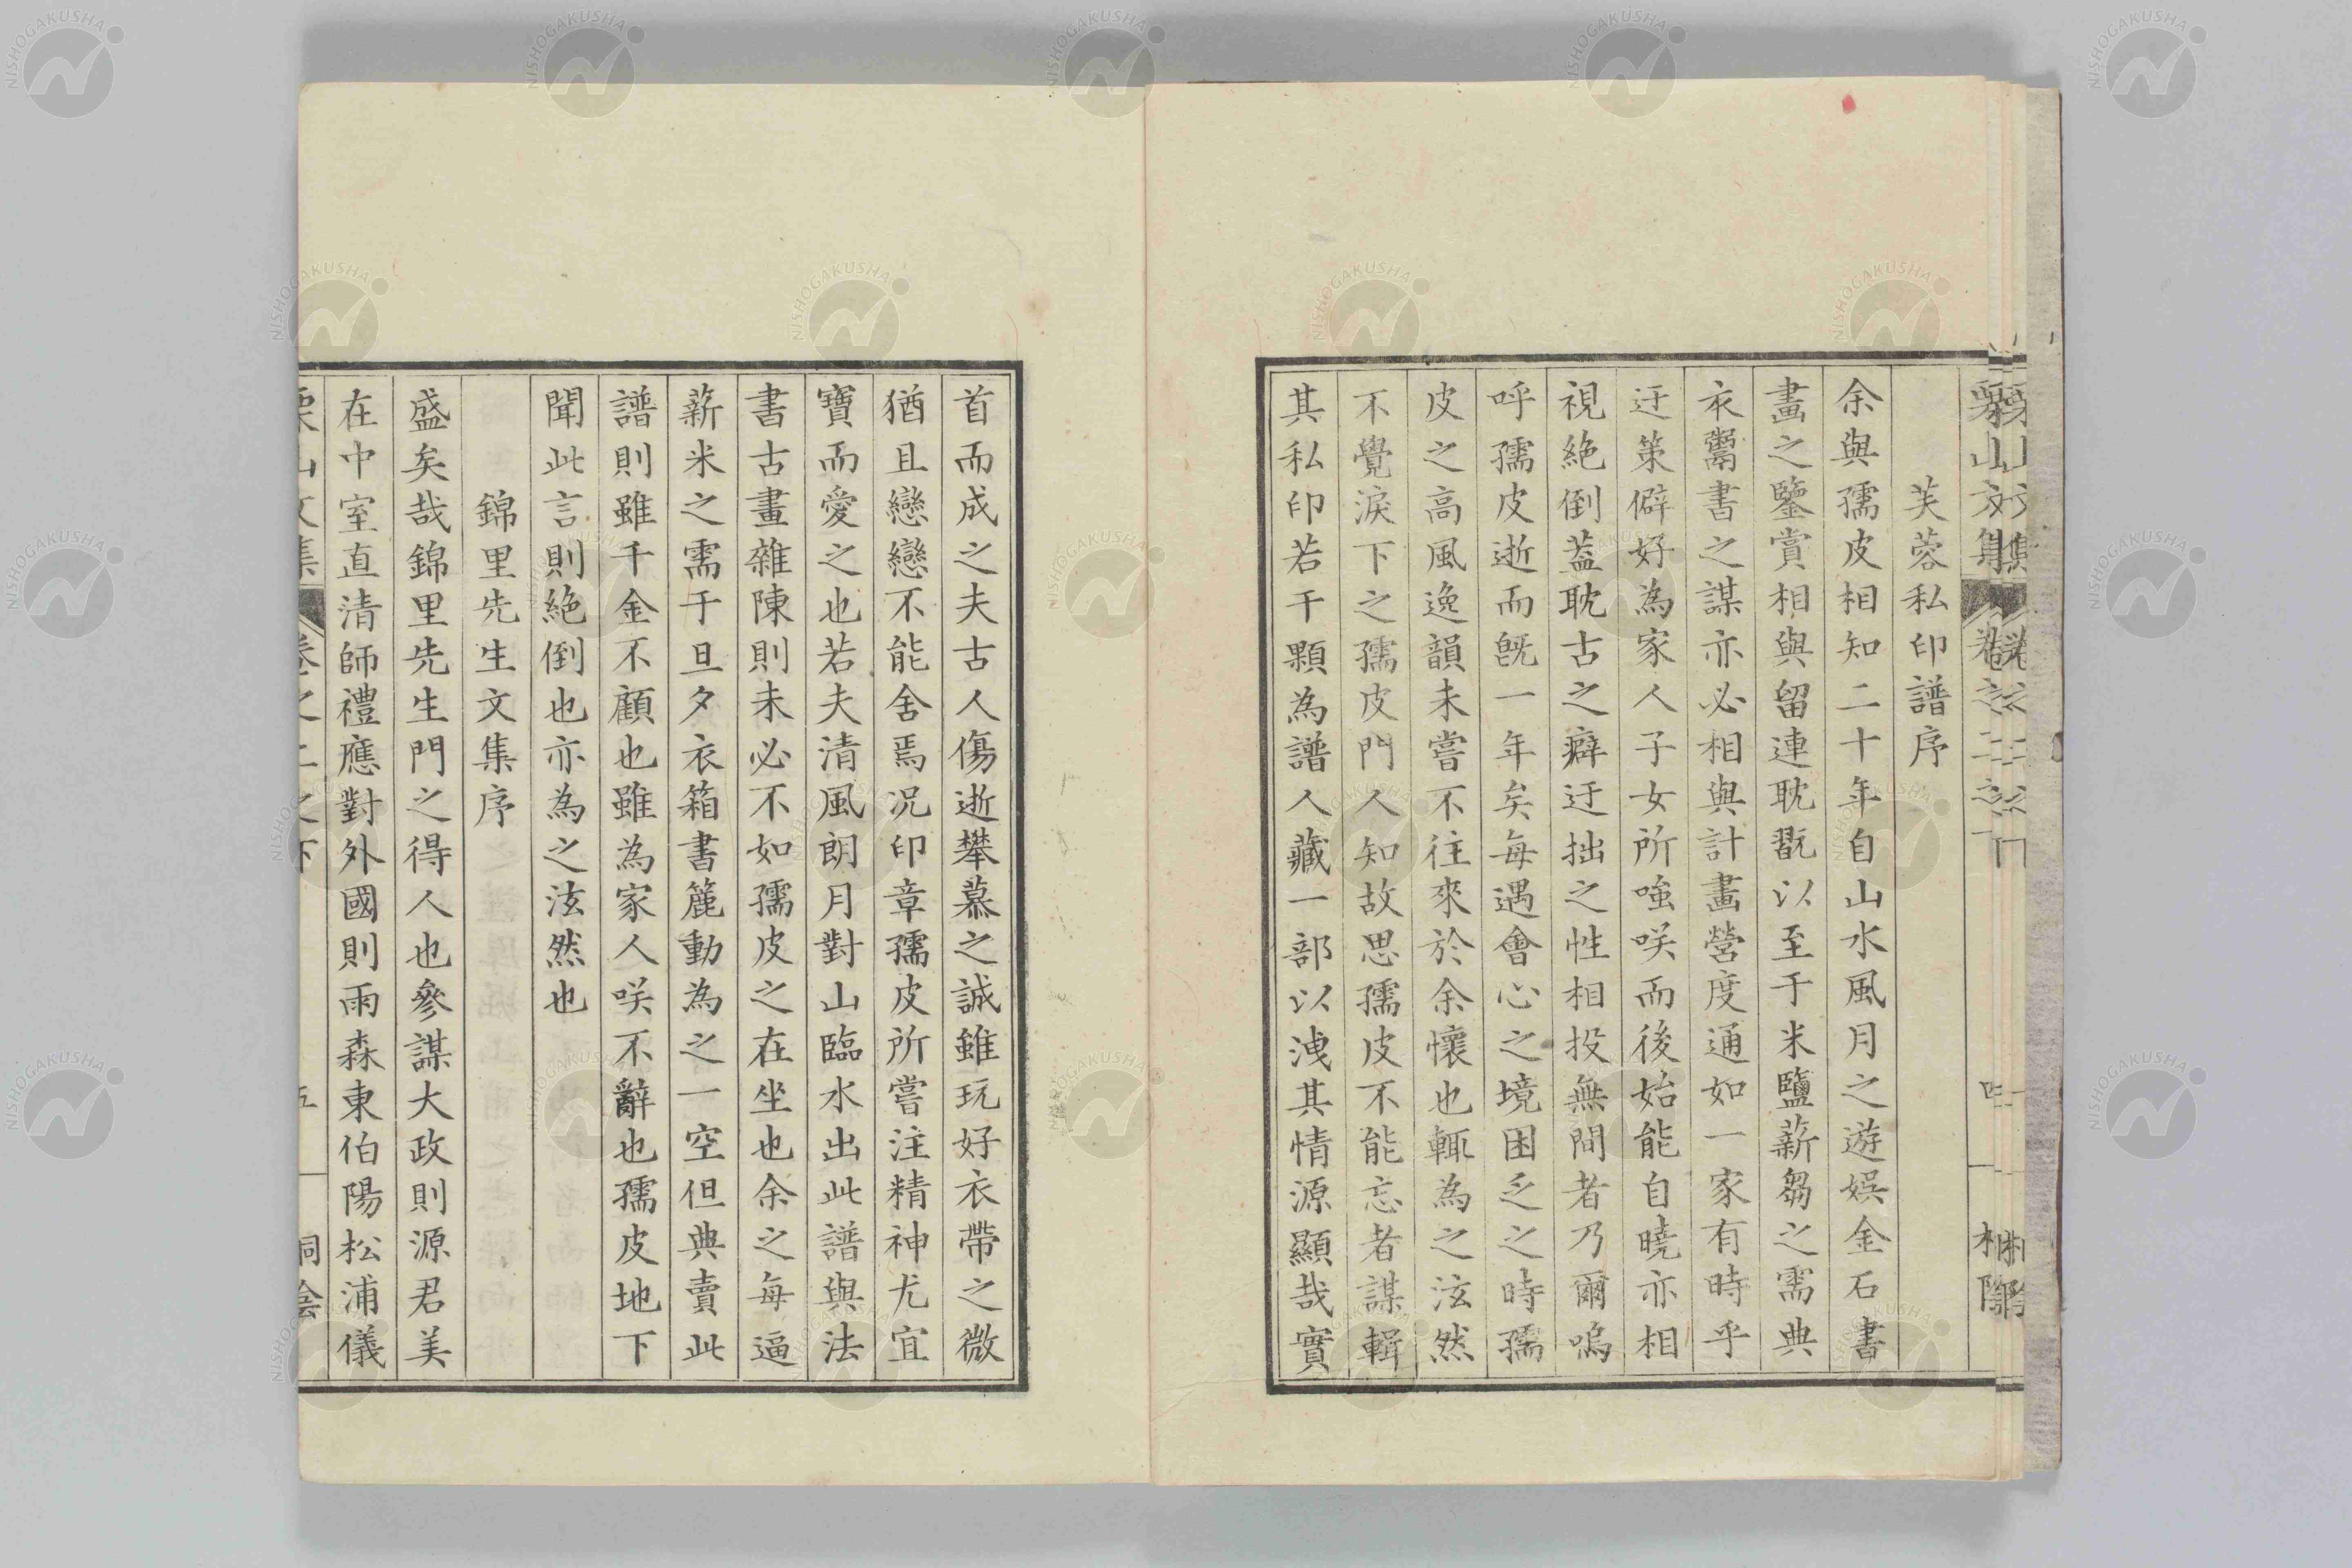 芙蓉私印譜序
余與孺皮相知二十年自山水風月之遊娯金石書
畫之鑒賞相與留連耽翫以至于米鹽薪芻之需典
衣鬻書之謀亦必相與計畫營度通如一家有時乎
迂策僻好為家人子女所嗤咲而後始能自曉亦相
視絶倒葢耽古之癖迂拙之性相投無間者乃爾嗚
呼孺皮逝而既一年矣每遇會心之境困乏之時孺
皮之高風逸韻未嘗不往來於余懷也輒為之泫然
不覺淚下之孺皮門人知故思孺皮不能忘者謀輯
其私印若干顆為譜人藏一部以洩其情源顯哉實
首而成之夫古人傷逝攀慕之誠雖玩好衣帶之微
猶且戀戀不能舍焉况印章孺皮所嘗注精神尤宜
寶而愛之也若夫清風朗月對山臨水出此譜與法
書古畫雜陳則未必不如孺皮之在坐也余之每逼
薪米之需于旦夕衣箱書簏動為之一空但典賣此
譜則雖千金不顧也雖為家人咲不辭也孺皮地下
聞此言則絶倒也亦為之泫然也
錦里先生文集序
盛矣哉錦里先生門之得人也參謀大政則源君美
在中室直清師禮應對外國則雨森東伯陽松浦儀
NISHOGAKUSHA